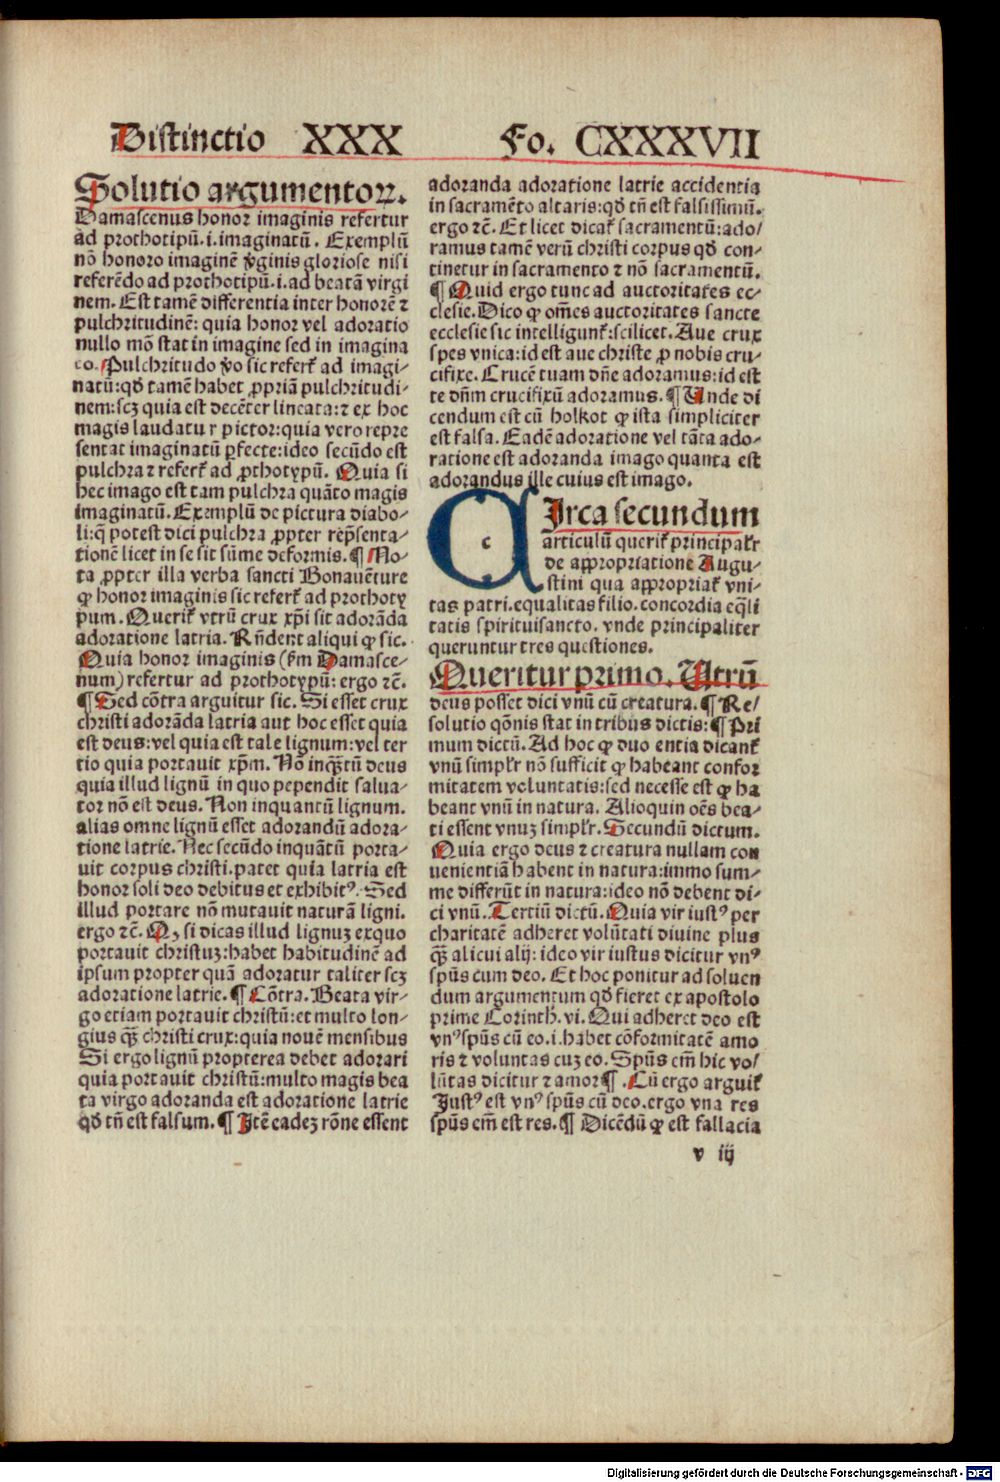 Distinctio XXX Fo. CXXXVII
Solutio argumentoꝝ.
Damascenus honor imaginis refertur
ad prothotipū.i.imaginatū. Exemplū
nō honoro imaginē v̓ginis gloriose nisi
referēdo ad prothotipū.i.ad beatā virgi
nem. Est tamē differentia inter honorē ⁊
pulchritudinē: quia honor vel adoratio
nullo mō stat in imagine sed in imagina
to. Pulchritudo v̓o sic referť ad imagi-
natū: qđ tamē habet ꝓpriā pulchritudi-
nem: scꝫ quia est decēter lineata: ⁊ ex hoc
magis laudatur pictor: quia vero repre
sentat imaginatū ꝑfecte: ideo secūdo est
pulchra ⁊ referť ad ꝓthotypū. Quia si
hec imago est tam pulchra quāto magis
imaginatū. Exemplū de pictura diabo-
li: q̄ potest dici pulchra ꝓpter rep̄senta-
tionē licet in se sit sūme deformis. ¶ No-
ta ꝓpter illa verba sancti Bonauēture
ꝙ honor imaginis sic referť ad prothoty
pum. Queriť vtrū crux xp̄i sit adorāda
adoratione latria. Rn̄dent aliqui ꝙ sic.
Quia honor imaginis (ẜm Damasce-
num) refertur ad prothotypū: ergo ⁊c̄.
¶ Sed cōtra arguitur sic. Si esset crux
christi adorāda latria aut hoc esset quia
est deus: vel quia est tale lignum: vel ter
tio quia portauit xp̄m. Nō inqꝫtū deus
quia illud lignū in quo pependit salua-
tor nō est deus. Non inquantū lignum.
alias omne lignū esset adorandū adora-
tione latrie. Nec secūdo inquātū porta-
uit corpus christi. patet quia latria est
honor soli deo debitus et exhibitꝰ. Sed
illud portare nō mutauit naturā ligni.
ergo ⁊c̄. Qꝫ si dicas illud lignuꝫ exquo
portauit christuꝫ: habet habitudinē ad
ipsum propter quā adoratur taliter scꝫ
adoratione latrie. ¶ Cōtra. Beata vir-
go etiam portauit christū: et multo lon-
gius qꝫ christi crux: quia nouē mensibus
Si ergo lignū propterea debet adorari
quia portauit christū: multo magis bea
ta virgo adoranda est adoratione latrie
qđ tn̄ est falsum. ¶ Itē eadeꝫ rōne essent
adoranda adoratione latrie accidentia
in sacramēto altaris: qđ tn̄ est falsissimū.
ergo ⁊c̄. Et licet dicať sacramentū: ado-
ramus tamē verū christi corpus qđ con-
tinetur in sacramento ⁊ nō sacramentū.
¶ Quid ergo tunc ad auctoritates ec-
clesie. Dico ꝙ om̄es auctoritates sancte
ecclesie sic intelligunť: scilicet. Aue crux
spes vnica: id est aue christe ꝓ nobis cru-
cifixe. Crucē tuam dn̄e adoramus: id est
te dn̄m crucifixū adoramus. ¶ Unde di
cendum est cū holkot ꝙ ista simpliciter
est falsa. Eadē adoratione vel tāta ado-
ratione est adoranda imago quanta est
adorandus ille cuius est imago.
c
CIrca secundum
articulū queriť principalr̄
de appropriatione Augu-
stini qua appropriať vni-
tas patri. equalitas filio. concordia eq̄li
tatis spirituisancto. vnde principaliter
queruntur tres questiones.
Queritur primo. Utrū
deus posset dici vnū cū creatura. ¶ Re-
solutio qōnis stat in tribus dictis: ¶ Pri
mum dictū. Ad hoc ꝙ duo entia dicanť
vnū simplr̄ nō sufficit ꝙ habeant confor
mitatem voluntatis: sed necesse est ꝙ ha
beant vnū in natura. Alioquin oēs bea-
ti essent vnuꝫ simplr̄. Secundū dictum.
Quia ergo deus ⁊ creatura nullam con
uenientiā habent in natura: immo sum-
me differūt in natura: ideo nō debent di-
ci vnū. Tertiū dictū. Quia vir iustꝰ per
charitatē adheret volūtati diuine plus
qꝫ alicui alij: ideo vir iustus dicitur vnꝰ
spūs cum deo. Et hoc ponitur ad soluen
dum argumentum qđ fieret ex apostolo
prime Corinth. vi. Qui adheret deo est
vnꝰ spūs cū eo.i.habet cōformitatē amo
ris ⁊ voluntas cuꝫ eo. Spūs em̄ hic vo-
lūtas dicitur ⁊ amor ¶. Cū ergo arguiť
Iustꝰ est vnꝰ spūs cū deo. ergo vna res
spūs em̄ est res. ¶ Dicēdū ꝙ est fallacia
v iij
Digitalisierung gefördert durch die Deutsche Forschungsgemeinschaft - DFG